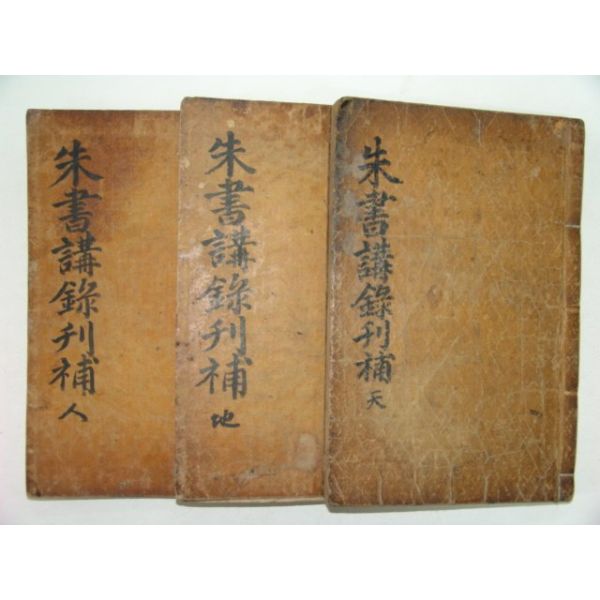 朱書講錄刊補 天
朱書講錄刊補 地
朱書講錄刊補 人